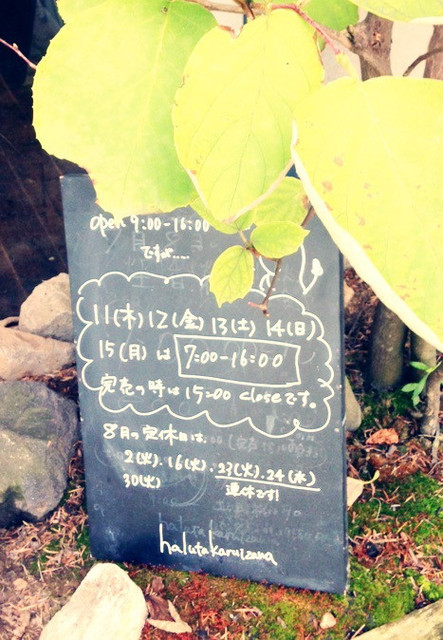 open 9:00-16:00
ですが.....
11(木)12(金)13(土)14(日)
15(月)は 7:00-16:00
完売の時は15:00 closeです。
8月の定休日は、
2(火).16(火).23(火).24(水)
30(火) 連休です!
halutakaruizawa